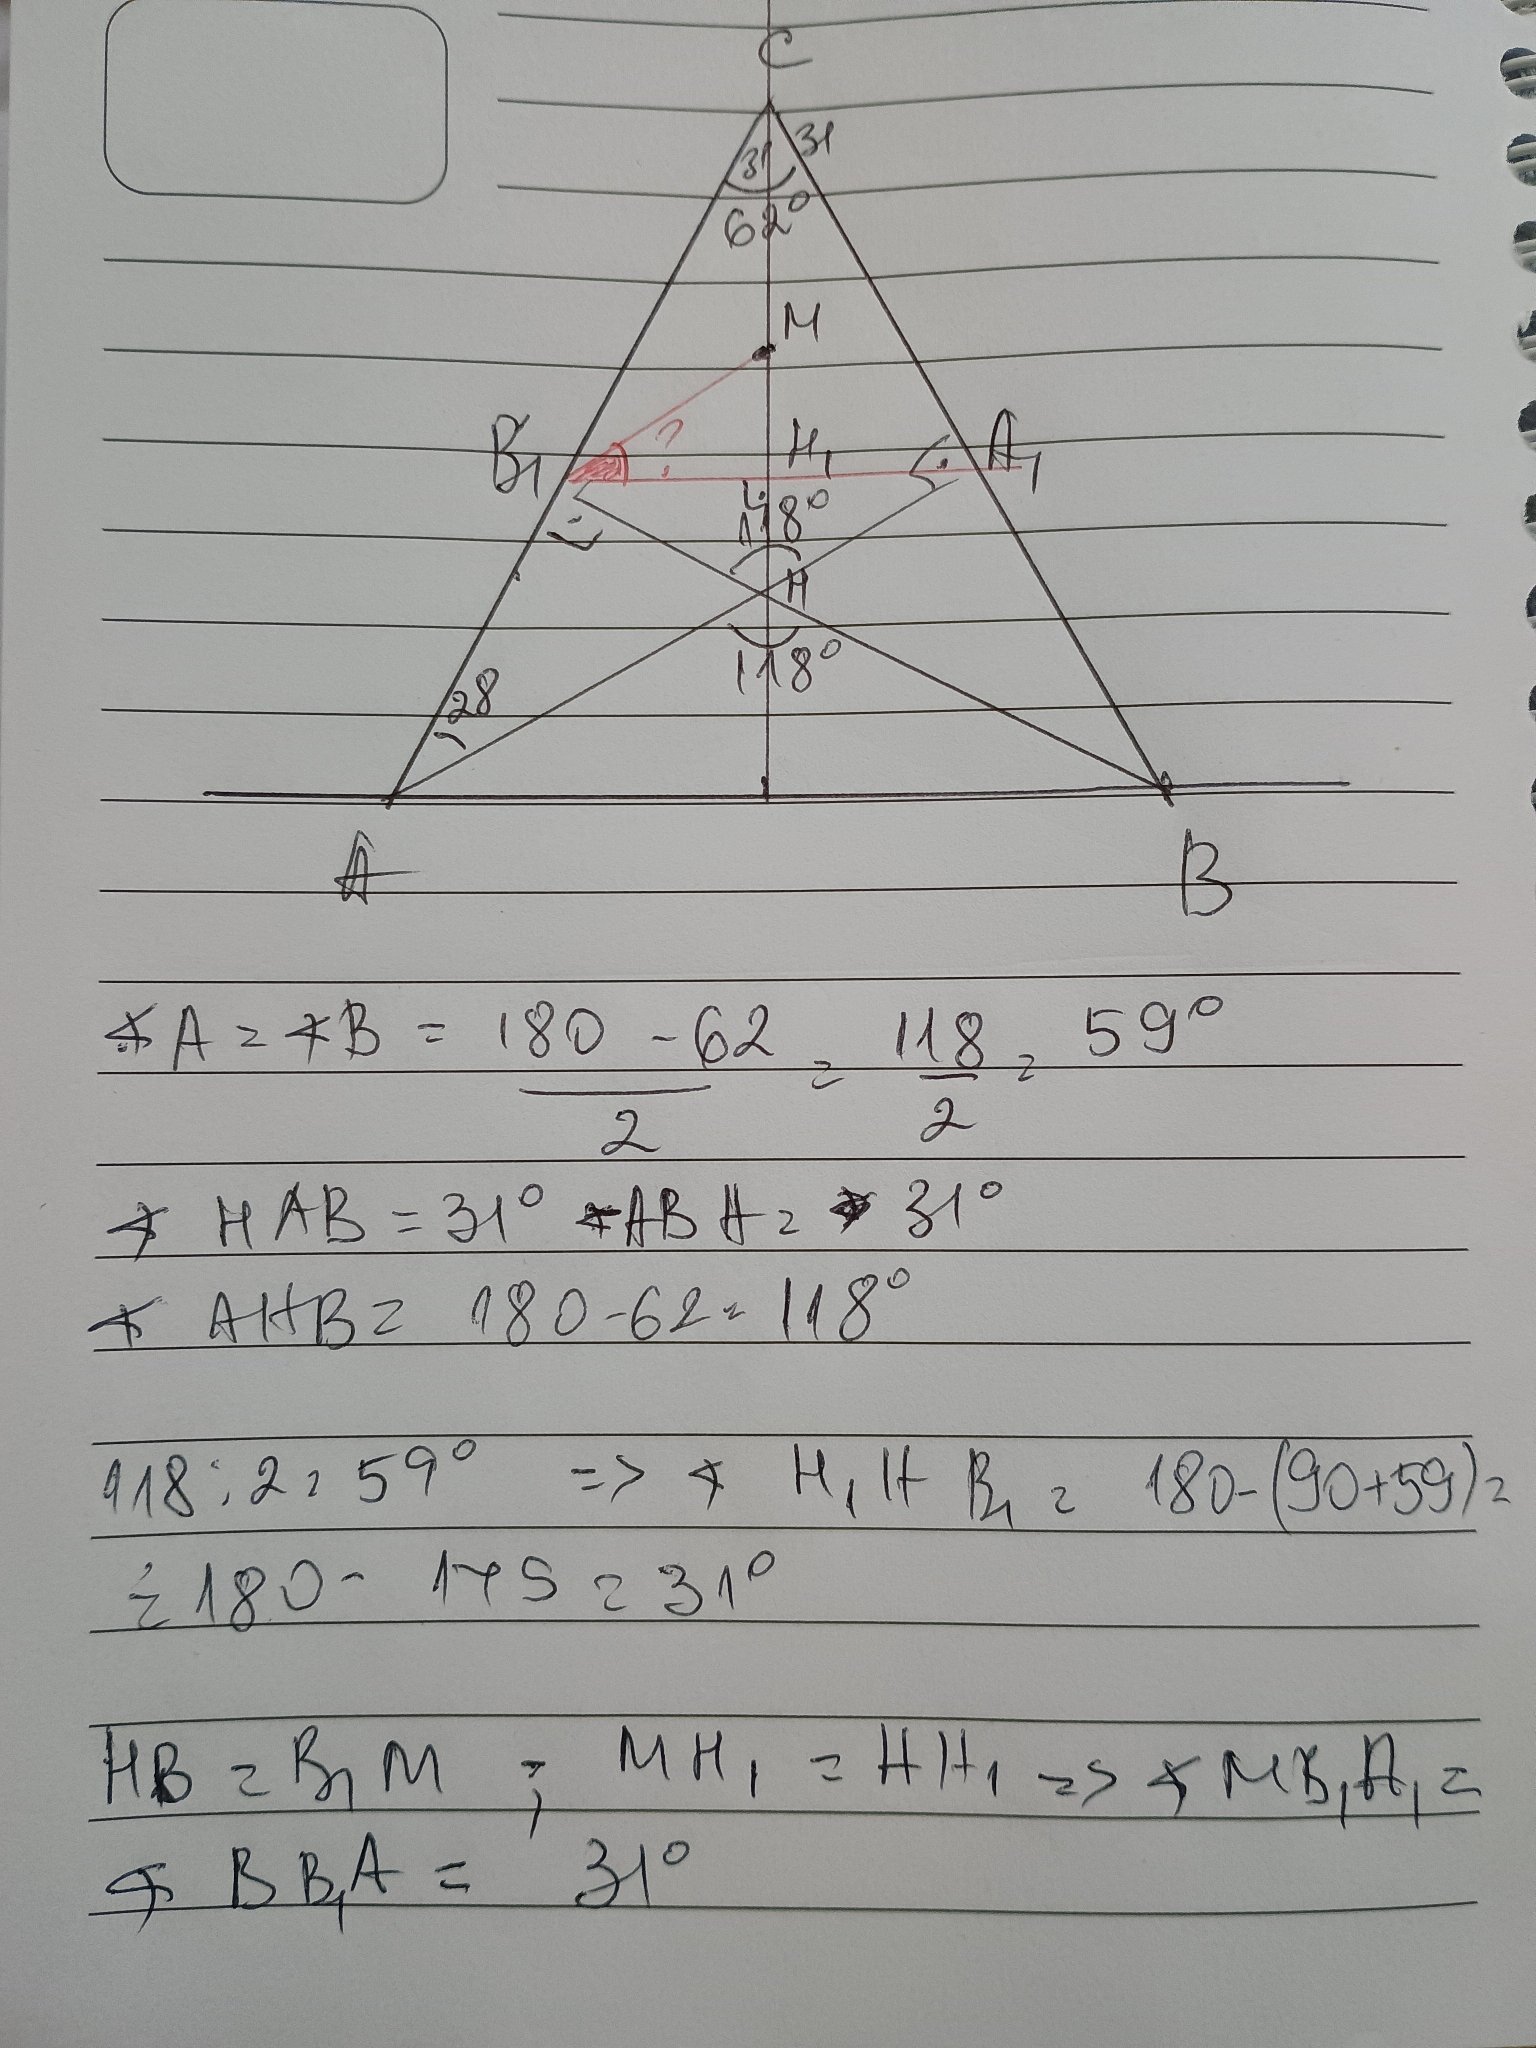 C
31 31
62°
M
B₁ ? H₁ A₁
118°
H
118°
28
A B
∢A = ∢B = 180 - 62 / 2 = 118 / 2 = 59°
∢ HAB = 31° ∢ABH = 31°
∢ AHB = 180 - 62 = 118°
118 : 2 = 59° => ∢ H₁HB₁ = 180 - (90+59) =
= 180 - 149 = 31°
HB = B₁M ; MH₁ = HH₁ => ∢MB₁A₁ =
∢ BB₁A = 31°